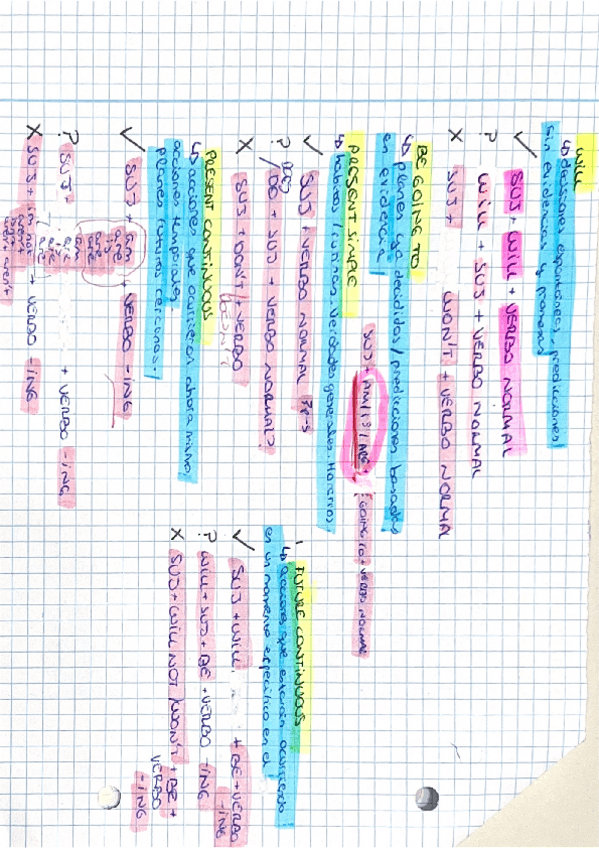 WILL
↳ decisiones espontáneas, predicciones
sin evidencias y promesas
✓ SUJ + WILL + VERBO NORMAL
? WILL + SUJ + VERBO NORMAL
X SUJ + WON'T + VERBO NORMAL
BE GOING TO
↳ planes ya decididos / predicciones basadas
en evidencia
SUJ + AM / IS / ARE + GOING TO + VERBO NORMAL
PRESENT SIMPLE
↳ hábitos / rutinas. Verdades generales. Horarios.
✓ SUJ + VERBO NORMAL 3ªp-s
? DO / DOES + SUJ + VERBO NORMAL?
X SUJ + DON'T / DOESN'T + VERBO
PRESENT CONTINUOUS
↳ acciones que ocurrieron ahora mismo,
acciones temporales
planes futuros cercanos.
✓ SUJ + am is are + VERBO -ING
? SUJ + + VERBO -ING
X SUJ + I'm not + VERBO -ING
FUTURE CONTINUOUS
↳ acciones que estarán ocurriendo
en un momento específico en el
✓ SUJ + WILL + BE + VERBO -ING
? WILL + SUJ + BE + VERBO -ING
X SUJ + WILL NOT / WON'T + BE +
VERBO -ING